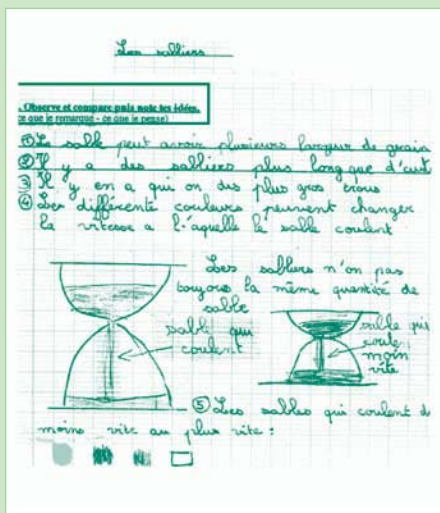 Les sabliers
. Observe et compare puis note tes idées.
ce que je remarque - ce que je pense)
① Le sable peut avoir plusieurs largeur de grain
② Il y a des sabliers plus long que d'autr
③ Il y en a qui on des plus gros trous
④ Les différente couleurs peuvent changer
la vitesse a l'aquelle le sable coulent
Les sabliers n'on pas
toujors la même quantité de
sable
sable qui
coulent
sable qui
coule
moin
vite
⑤ Les sables qui coulent d
moins vite au plus vite :